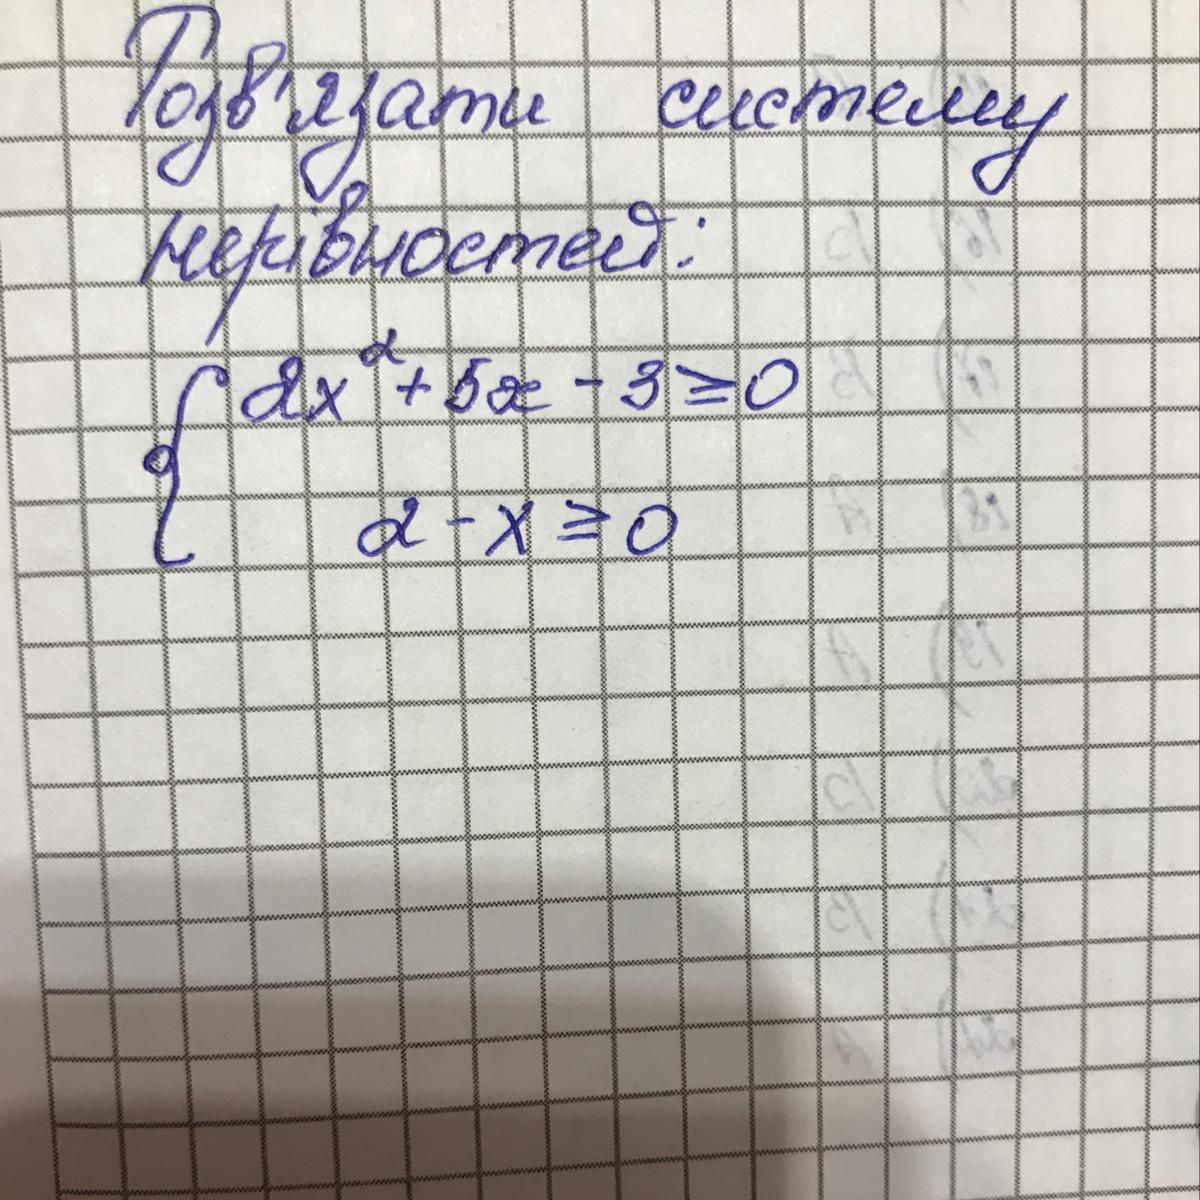 Розв'язати систему
нерівностей:
{ 2x² + 5x - 3 ≥ 0
2 - x ≥ 0